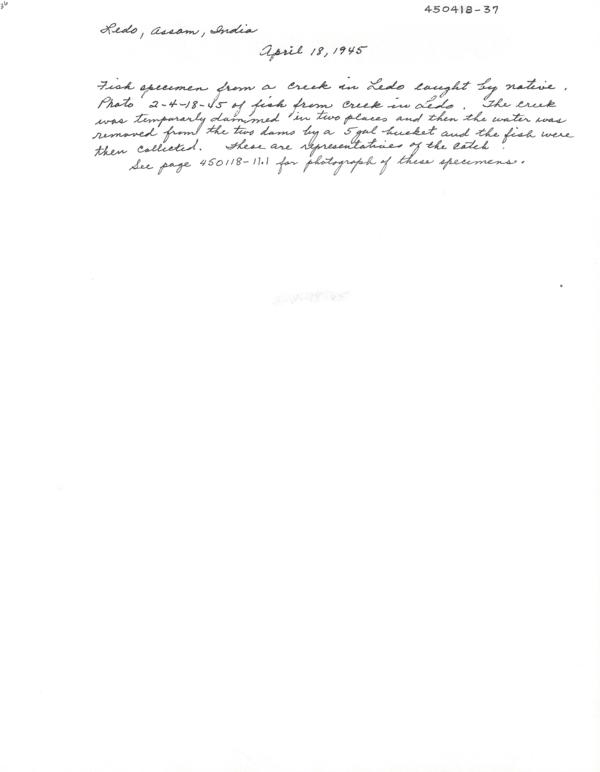 450418-37
Ledo, Assam, India
April 18, 1945
Fish specimen from a creek in Ledo caught by native.
Photo 2-4-18-45 of fish from creek in Ledo. The creek
was temporarly dammed in two places and then the water was
removed from the two dams by a 5 gal bucket and the fish were
then collected. These are representatives of the catch.
See page 450118-11.1 for photograph of these specimens.